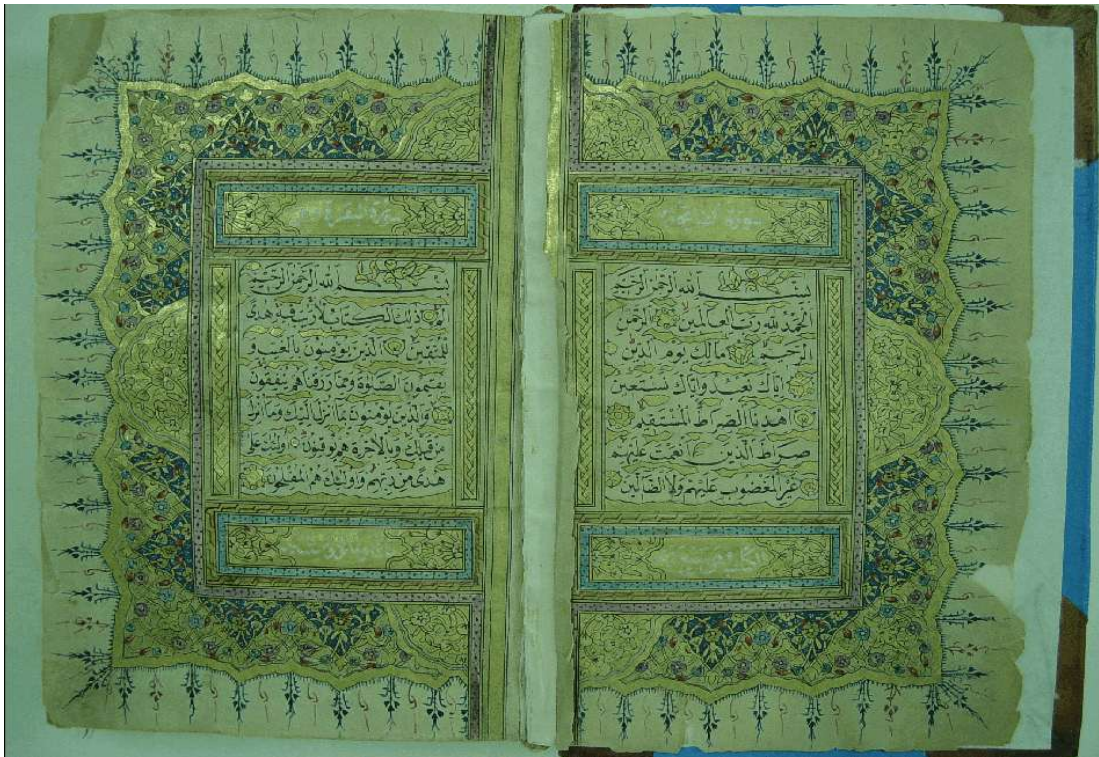 سورة الفاتحة
بسم الله الرحمن الرحيم
الحمد لله رب العالمين الرحمن
الرحيم مالك يوم الدين
اياك نعبد واياك نستعين
اهدنا الصراط المستقيم
صراط الذين انعمت عليهم
غير المغضوب عليهم ولا الضالين
سورة البقرة
بسم الله الرحمن الرحيم
الم ذلك الكتاب لا ريب فيه هدى
للمتقين الذين يؤمنون بالغيب و
يقيمون الصلوة ومما رزقناهم ينفقون
والذين يؤمنون بما انزل اليك وما انزل
من قبلك وبالاخرة هم يوقنون اولئك على
هدى من ربهم واولئك هم المفلحون